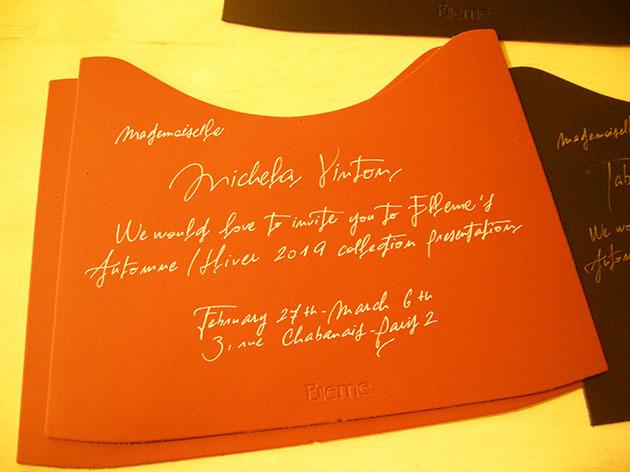 Mademoiselle
Michela Vinton
We would love to invite you to Elleme's
Automne/Hiver 2019 collection presentation
February 27th - March 6th
3, rue Chabanais - Paris 2
Elleme
Elleme
Mademoiselle
Tab
We wo
Autom